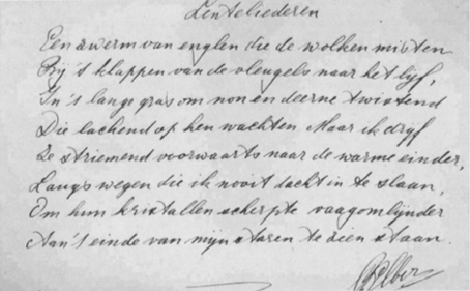 Lenteliederen
Een zwerm van englen die de wolken misten
Bij 't klappen van de vleugels naar het lijf,
In 's lange gras om non en deerne twistend
Die lachend op hen wachten Maar ik dryf
Ze striemend voorwaarts naar de warme einder,
Langs wegen die ik nooit dacht in te slaan,
Om hun kristallen scherpte vaagomlijnder
Aan 't einde van mijn staren te zien staan.